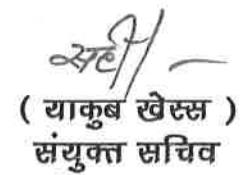 सही/-
( याकुब खेस्स )
संयुक्त सचिव